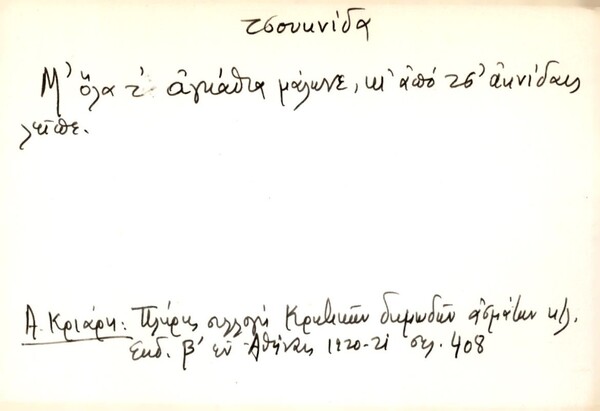 τσουκνίδα
Μ' ὅλα τ' ἀγκάθια μάλωνε, κι' ἀπό τσ' ἀκνίδες
λεῖπε.
Α. Κριάρη: Πλήρης συλλογή Κρητικῶν δημωδῶν ἀσμάτων κτλ.
Ἐκδ. β' ἐν Ἀθήναις 1920-21 σελ. 408